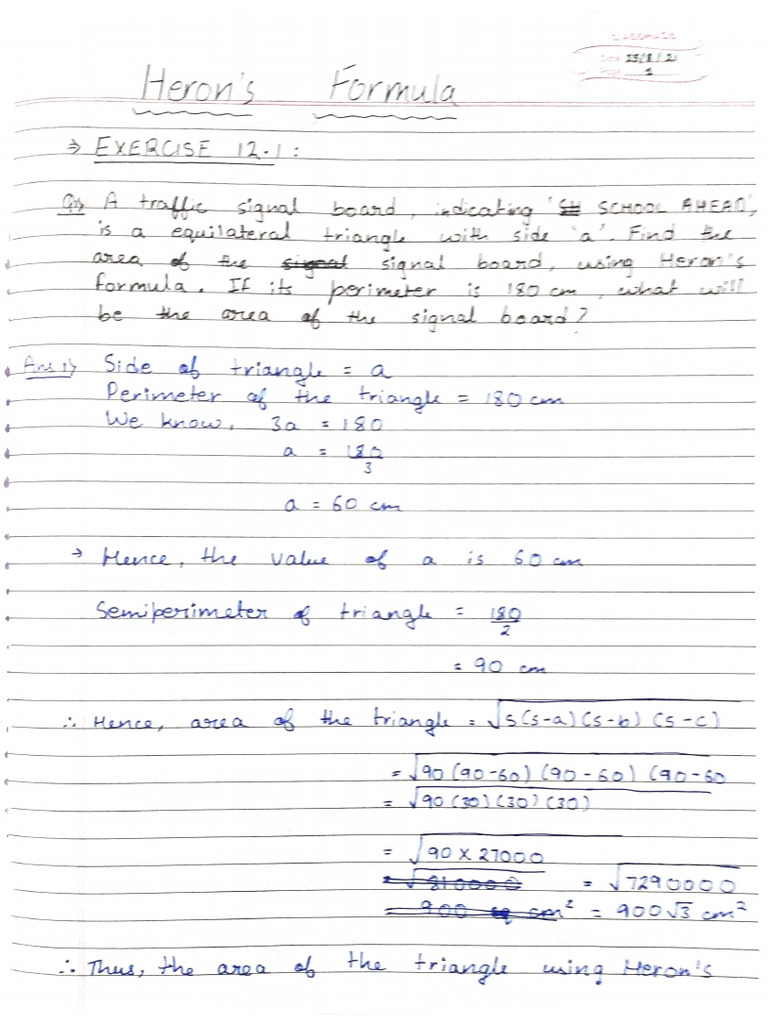 CLASSMATE
Date 15/8/21
Page 1
Heron's Formula
⇒ EXERCISE 12.1:
Q1) A traffic signal board, indicating 'SH SCHOOL AHEAD',
is a equilateral triangle with side 'a'. Find the
area of the signal signal board, using Heron's
formula. If its perimeter is 180 cm, what will
be the area of the signal board?
Ans 1) Side of triangle = a
Perimeter of the triangle = 180 cm
We know, 3a = 180
a = 180/3
a = 60 cm
→ Hence, the value of a is 60 cm
Semiperimeter of triangle = 180/2
= 90 cm
∴ Hence, area of the triangle = √s(s-a)(s-b)(s-c)
= √90(90-60)(90-60)(90-60
= √90(30)(30)(30)
= √90 × 27000
= √810000 = √7290000
= 900 sq cm² = 900√3 cm²
∴ Thus, the area of the triangle using Heron's